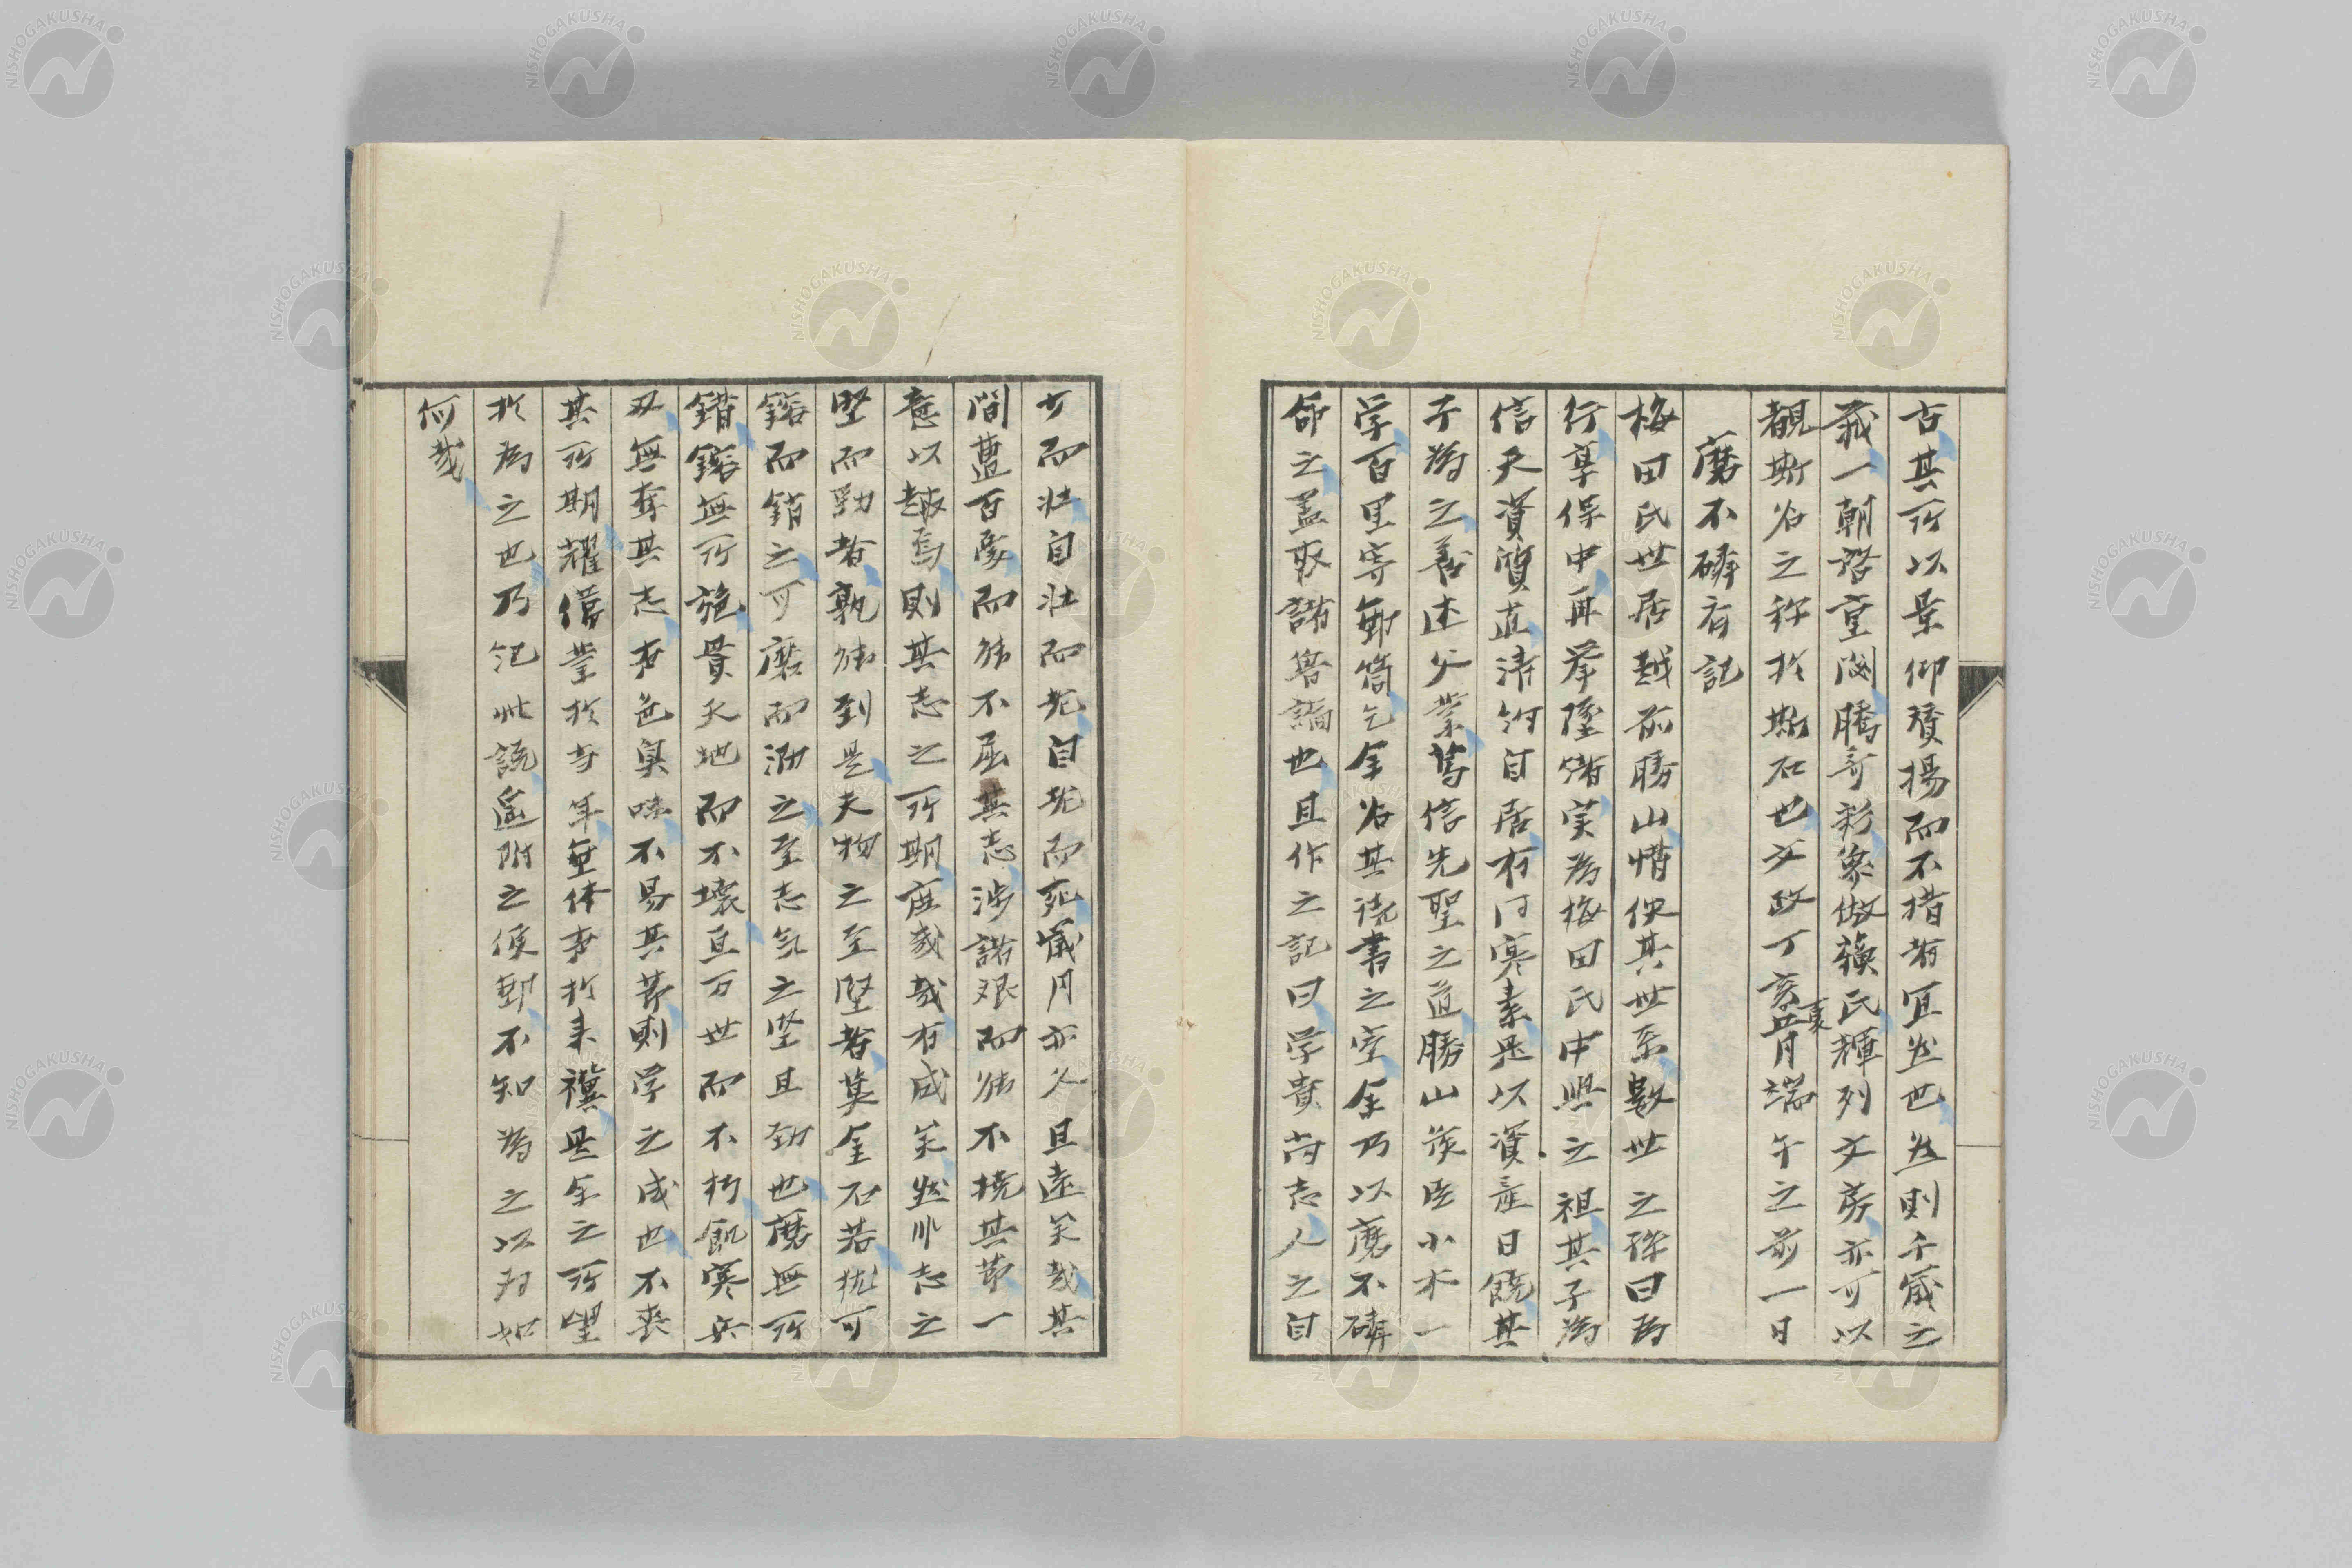 古其所以景仰賛揚而不措者宜也然則千歳之
義一朝啓重淵騰奇彩象倣蘓氏輝列文房亦可以
觀斯名之称於斯石也文政丁亥夏五月端午之前一日
磨不磷斎記
梅田氏世居越前勝山惜佚其世系數世之孫曰為
行尊保中再挙墜緒実為梅田氏中興之祖其子為
信天資質直清約自居有何寒素是以資産日饒其
子為之善述父業篤信先聖之道勝山侯臣小木一
学百里寄郵筒乞余名其読書之室余乃以磨不磷
命之蓋取諸魯論也且作之記曰学貴尚志人之自
少而壮自壮而老自老而死歳月亦久且遠矣哉其
間豊百慮而能不屈其志渉諸艱而能不撓其節一
意以趍焉則其志之所期庶哉哉有成矣然非志之
堅而勁者孰能到是夫物之至堅者莫金石若猶可
鎔而銷之可磨而泐之至志気之堅且勁也磨無所
錯鎔無所施貫天地而不壊亘万世而不朽飢寒兵
刃無奪其志声色臭味不易其節則学之成也不喪
其所期耀儒業於寺年垂休声於来禩是余之所望
於為之也乃記此説逓附之使郵不知為之以為如
何哉